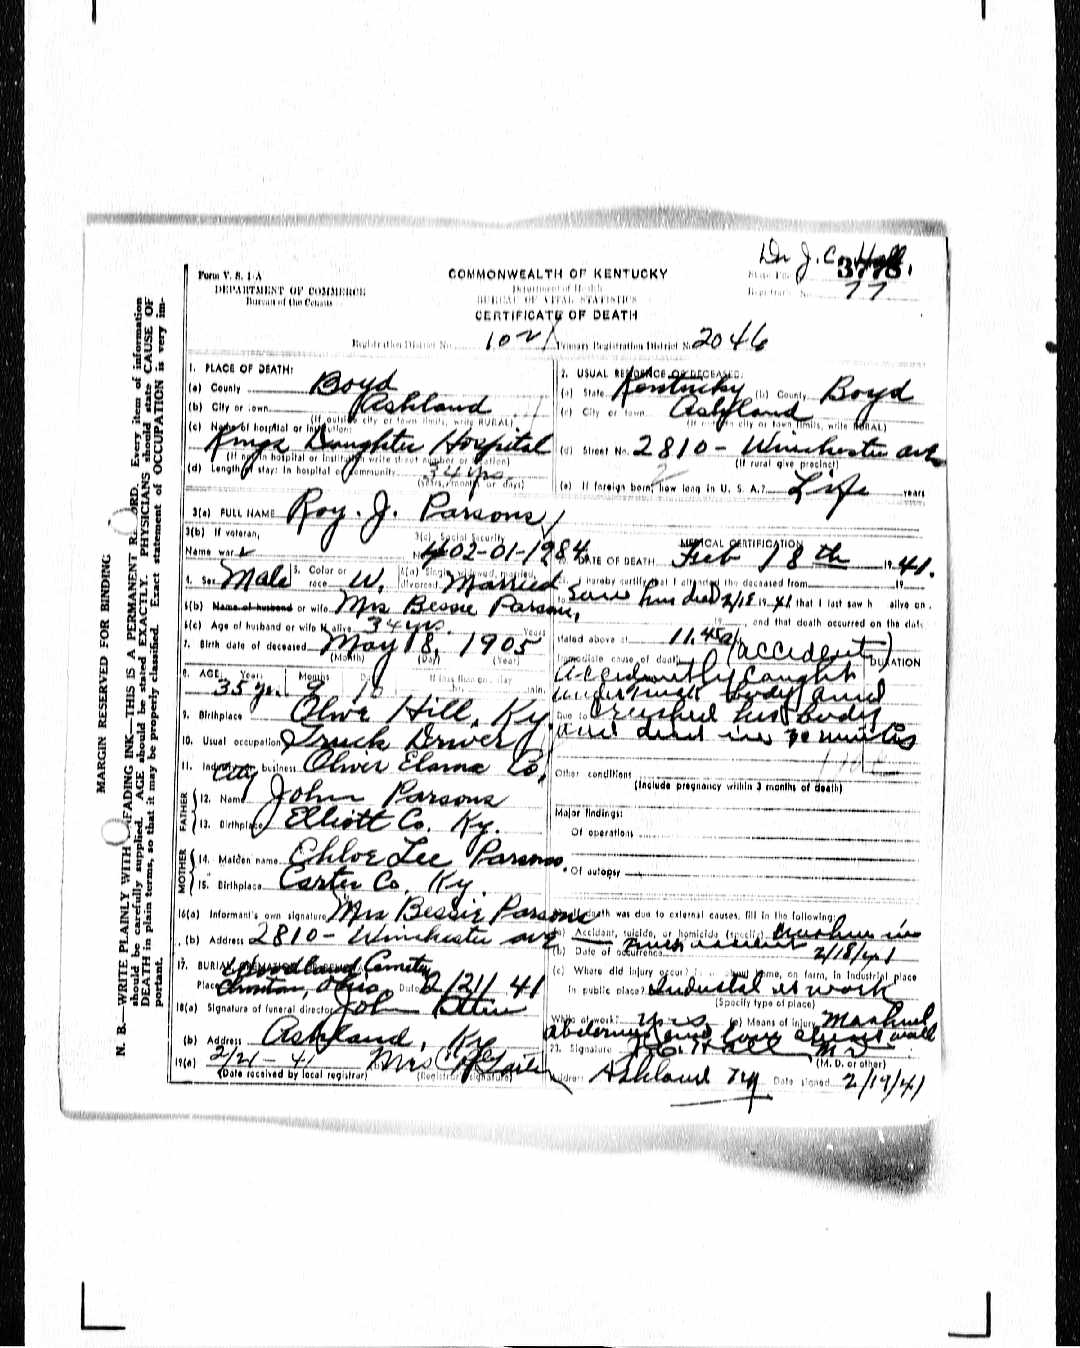 Dr J. C. Hall.
Form V. S. 1-A
COMMONWEALTH OF KENTUCKY
State File No. 3778
DEPARTMENT OF COMMERCE
Department of Health
Bureau of the Census
BUREAU OF VITAL STATISTICS
Registrar's No. 77
CERTIFICATE OF DEATH
Registration District No. 1021 Primary Registration District No. 2046
MARGIN RESERVED FOR BINDING
N. B.—WRITE PLAINLY WITH FADING INK—THIS IS A PERMANENT RECORD. Every item of information
should be carefully supplied. AGE should be stated EXACTLY. PHYSICIANS should state CAUSE OF
DEATH in plain terms, so that it may be properly classified. Exact statement of OCCUPATION is very im-
portant.
1. PLACE OF DEATH:
(a) County Boyd
(b) City or town Ashland
(If outside city or town limits, write RURAL)
(c) Name of hospital or institution:
Kings Daughter Hospital
(If not in hospital or institution write street number or location)
(d) Length of stay: In hospital or community 34 yrs.
(Years, months or days)
2. USUAL RESIDENCE OF DECEASED:
(a) State Kentucky (b) County Boyd
(c) City or town Ashland
(If outside city or town limits, write RURAL)
(d) Street No. 2810 - Winchester ave
(If rural give precinct)
(e) If foreign born, how long in U. S. A.? Life years
3(a) FULL NAME Roy. J. Parsons
3(b) If veteran,
Name war
3(c) Social Security
No. 402-01-1984
4. Sex Male 5. Color or race W. 6(a) Single, widowed, married, divorced Married
6(b) Name of husband or wife Mrs Bessie Parsons,
6(c) Age of husband or wife if alive 34 yrs. Years
7. Birth date of deceased May 18, 1905
(Month) (Day) (Year)
8. AGE Years Months Days If less than one day
35 yrs. 9 hr. min.
9. Birthplace Olive Hill, Ky.
10. Usual occupation Truck Driver
11. Industry or business Oliver Elama Co,
City
FATHER
12. Name John Parsons
13. Birthplace Elliott Co. Ky.
MOTHER
14. Maiden name Chloe Lee Parsons.
15. Birthplace Carter Co, Ky.
16(a) Informant's own signature Mrs Bessie Parsons
(b) Address 2810 - Winchester ave
17. BURIAL, CREMATION OR REMOVAL Woodland Cemetry
Place Ironton, Ohio Date 2/21/41
18(a) Signature of funeral director John
(b) Address Ashland, Ky
19(a) 2/21 - 41 Mrs
(Date received by local registrar) (Registrar's signature)
MEDICAL CERTIFICATION
20. DATE OF DEATH Feb 18th 1941.
21. I hereby certify that I attended the deceased from 19
to 2/18 1941 that I last saw h alive on
19 , and that death occurred on the date
stated above at 11.45
Immediate cause of death (accident) DURATION
Accidently caught
under truck body and
Due to Crushed his body
and died in 30 minutes
Other conditions
(Include pregnancy within 3 months of death)
Major findings:
Of operations
Of autopsy
22. If death was due to external causes, fill in the following:
(a) Accident, suicide, or homicide (specify)
truck accident
(b) Date of occurrence 2/18/41
(c) Where did injury occur? In or about home, on farm, in industrial place
in public place? Industal at work
(Specify type of place)
While at work? yes (e) Means of injury Mashed
abdomen and lower chest wall
23. Signature J. C. Hall M D
(M. D. or other)
Address Ashland Ky Date signed 2/19/41